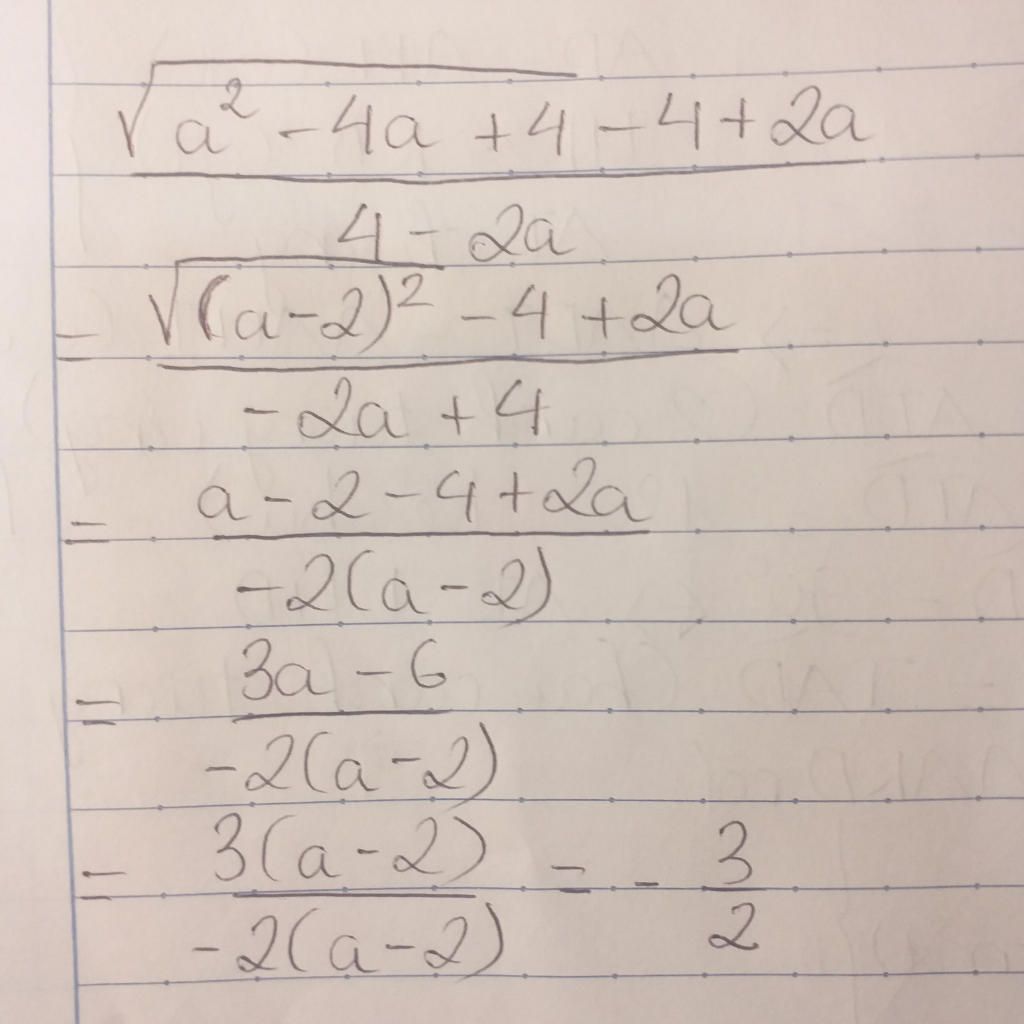 √(a² - 4a + 4) - 4 + 2a
4 - 2a
= √((a-2)²) - 4 + 2a
-2a + 4
= a - 2 - 4 + 2a
-2(a - 2)
= 3a - 6
-2(a - 2)
= 3(a - 2) = - 3
-2(a - 2) 2